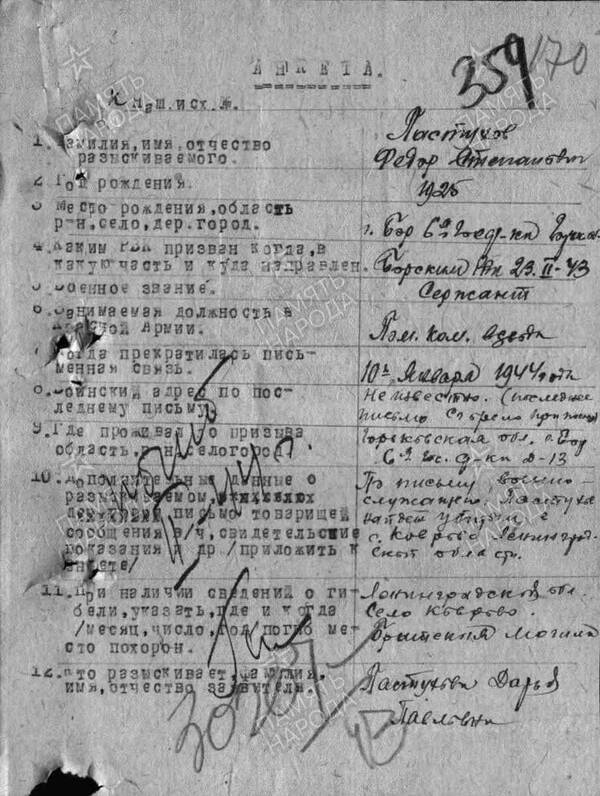 359 170
АНКЕТА.
маш.исх.№.
1. Фамилия,имя,отчество
разыскиваемого.
Пастухов
Федор Степанович
2 Год рождения.
1925
3 Место рождения,область
р-н,село,дер.город.
г. Бор 6ая Госдр-ка
4. Каким РВК призван когда,в
какую часть и куда направлен.
Борским 23.II-43
5 Военное звание.
Сержант
6. Занимаемая должность в
Красной Армии.
Пом. ком. взвода
7 Когда прекратилась пись-
менная связь.
10го Января 1944 года
8. Воинский адрес по пос-
леднему письму.
Неизвестно. (последнее
письмо
9. Где проживал до призыва
область,р-н,село,город.
Горьковская обл. г. Бор
Д-13
10. Дополнительные данные о
разыскиваемом,
письмо товарищей
сообщения в/ч,свидетельские
показания и др /приложить к
анкете/
По письму военно-
служащего. Пастухов
найден убитым в
с. Коврово Ленинград-
ской области.
11. При наличии сведений о ги-
бели,указать,где и когда
/месяц,число,год погиб ме-
сто похорон.
Ленинградская обл.
Село Коврово.
Братская Могила
12. Кто разыскивает,фамилия,
имя,отчество заявителя.
Пастухова Дарья
Павловна
ПАМЯТЬ
НАРОДА